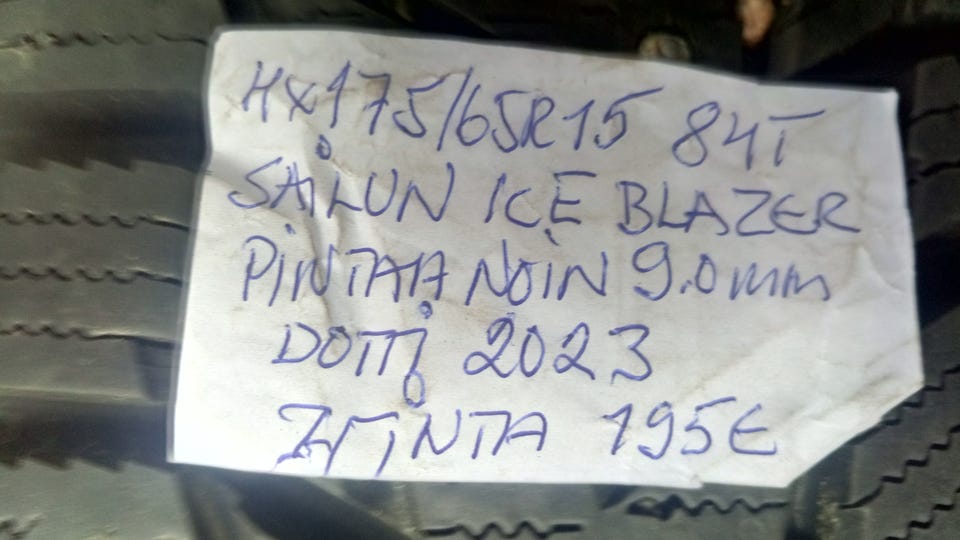 4x175/65R15 84T
SAILUN ICE BLAZER
PINTAA NOIN 9.0mm
DOTTI 2023
HINTA 195€